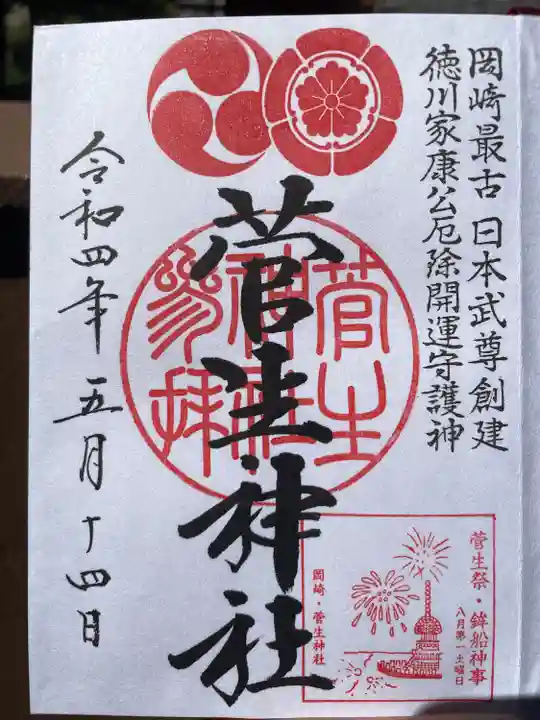 岡崎最古 日本武尊創建
徳川家康公厄除開運守護神
菅生神社
菅生
神社
参拝
令和四年 五月 十四日
菅生祭・鉾船神事
八月第一土曜日
岡崎・菅生神社